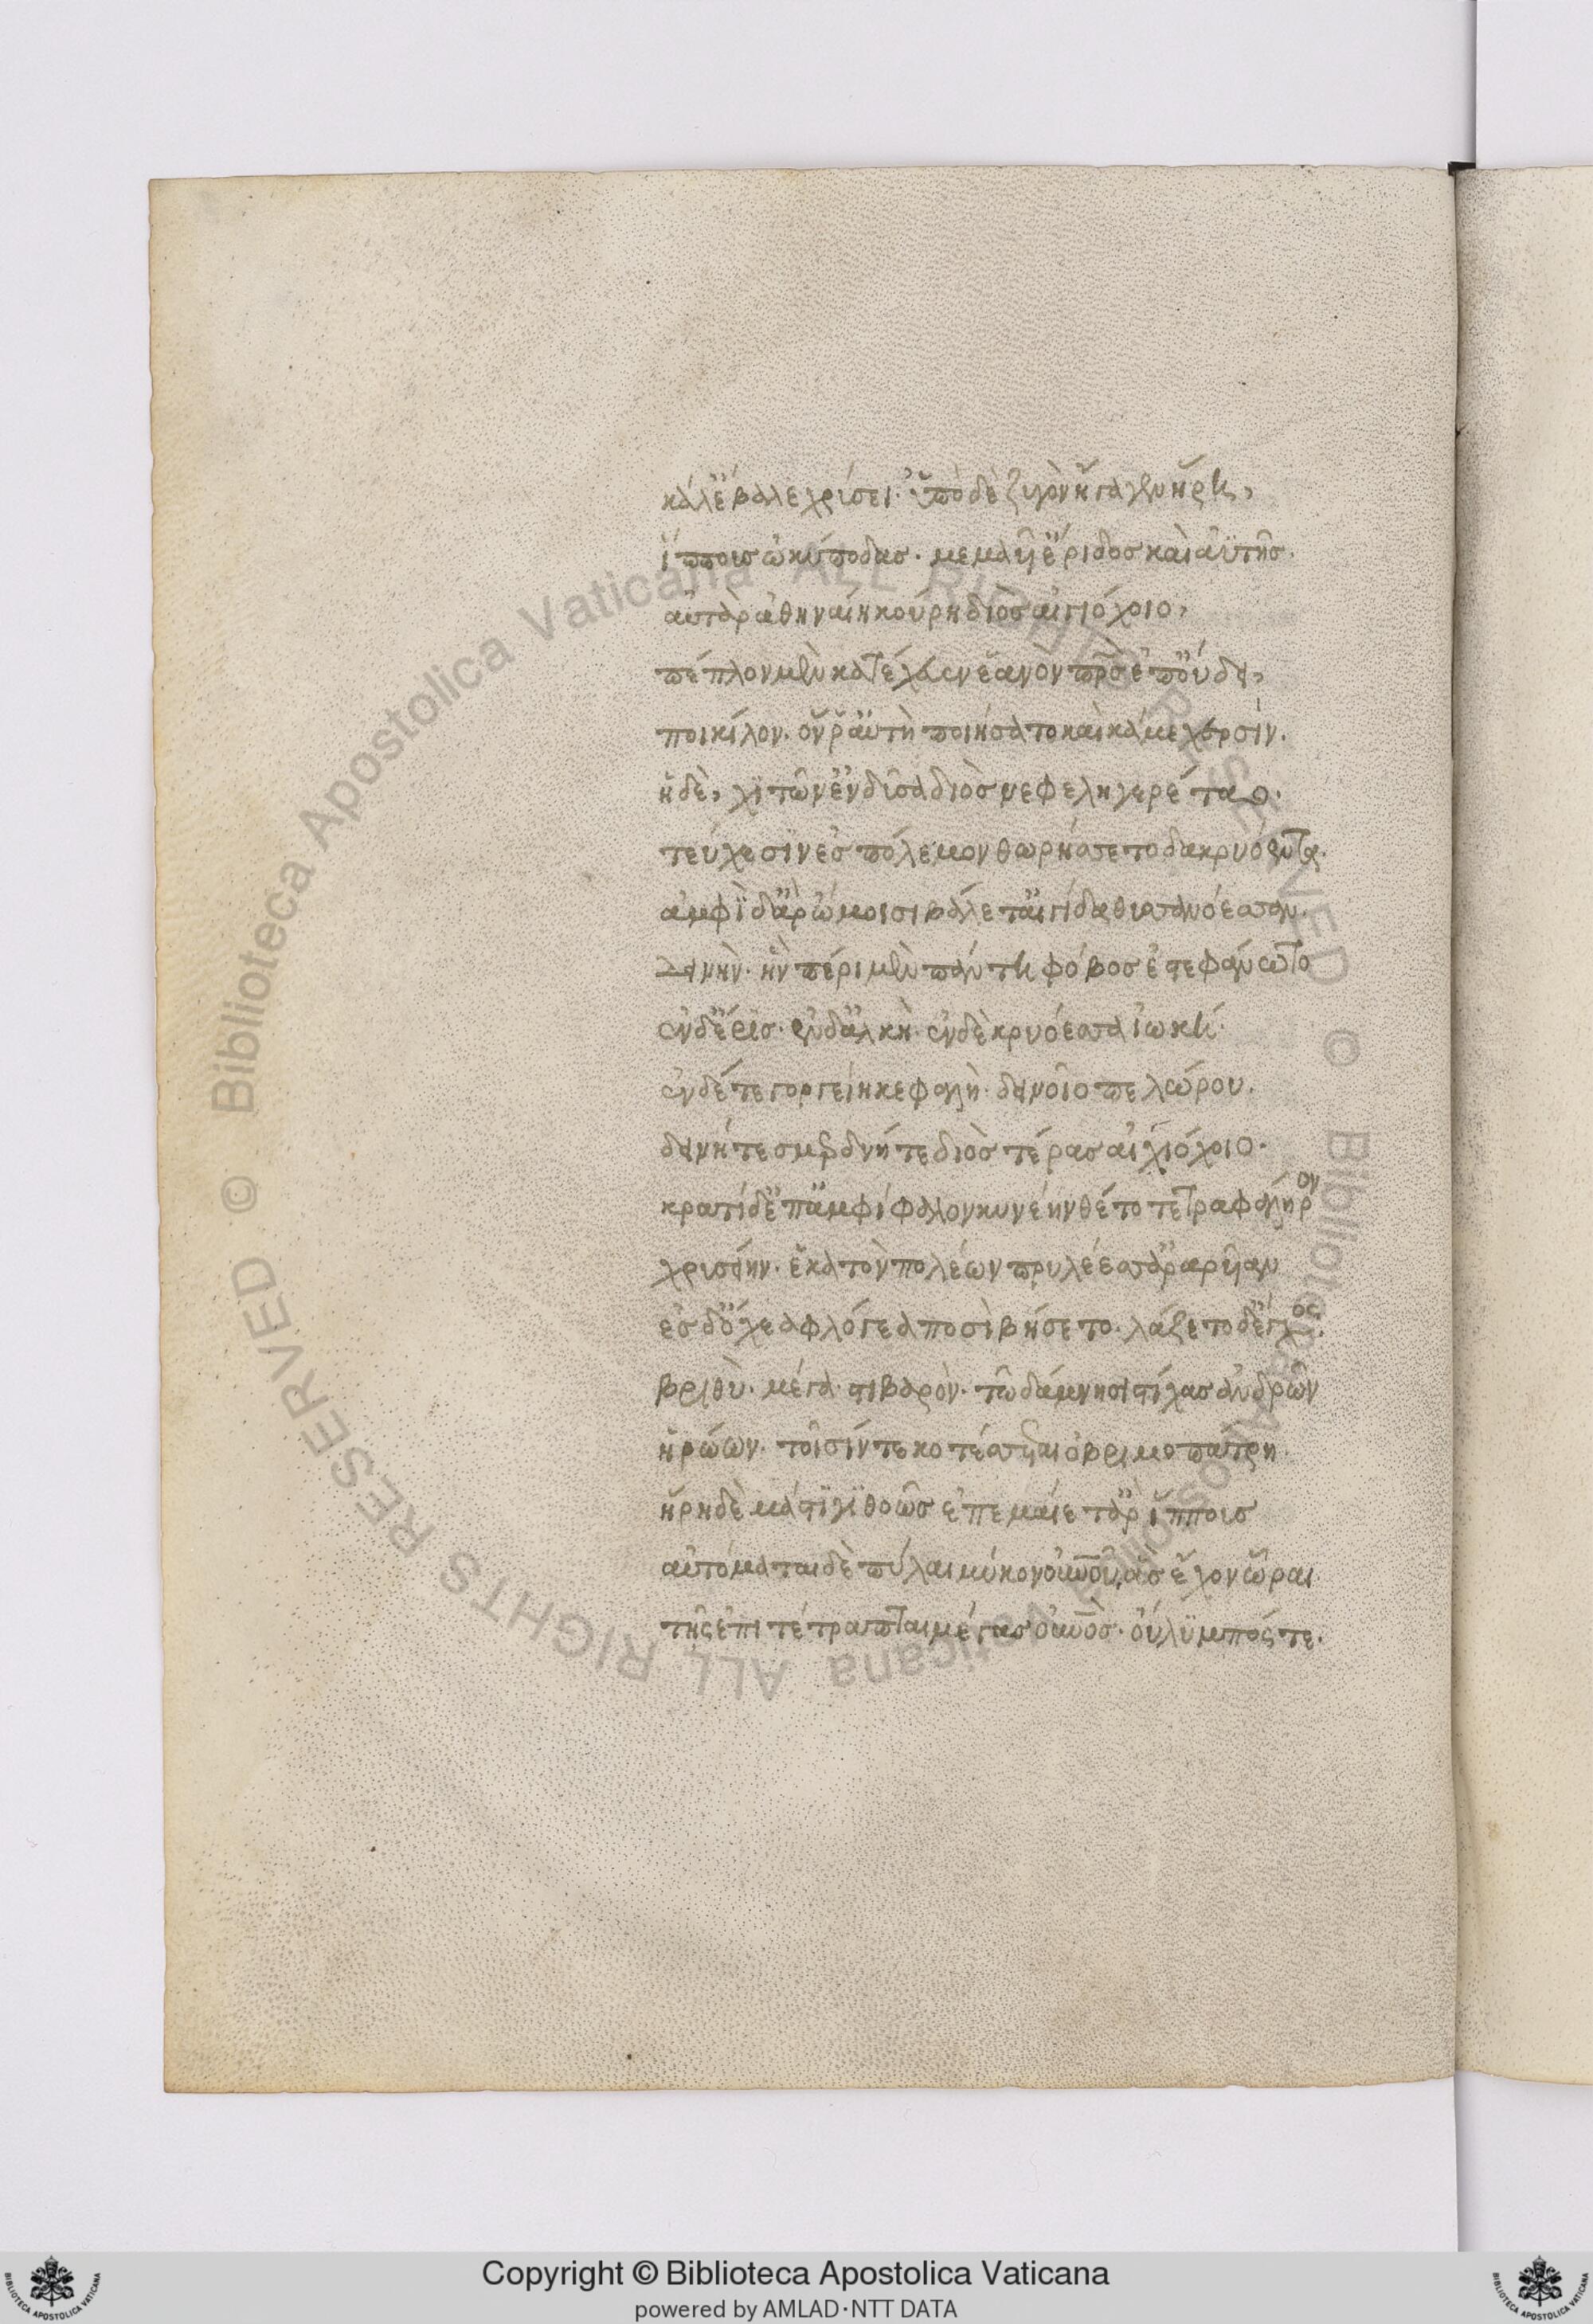 κάλ' ἔβαλε χρύσει'. ὑπὸ δὲ ζυγὸν ἤγαγεν ἥρη,
ἵππους ὠκύποδας. μεμαυῖ' ἔριδος καὶ ἀϋτῆς.
αὐτὰρ ἀθηναίη κούρη διὸς αἰγιόχοιο,
πέπλον μὲν κατέχευεν ἑανὸν πατρὸς ἐπ' οὔδει,
ποικίλον. ὅν ῥ' αὐτὴ ποιήσατο καὶ κάμε χερσίν.
ἡ δὲ, χιτῶν' ἐνδῦσα διὸς νεφεληγερέταο.
τεύχεσιν ἐς πόλεμον θωρήσσετο δακρυόεντα.
ἀμφὶ δ' ἄρ' ὤμοισι βάλετ' αἰγίδα θυσσανόεσσαν.
δεινὴν. ἣν πέρι μὲν πάντη φόβος ἐστεφάνωτο
ἐν δ' ἔρις. ἐν δ' ἀλκὴ. ἐν δὲ κρυόεσσα ἰωκή.
ἐν δέ τε γοργείη κεφαλὴ. δεινοῖο πελώρου.
δεινή τε σμερδνή τε διὸς τέρας αἰγιόχοιο.
κρατὶ δ' ἐπ' ἀμφίφαλον κυνέην θέτο τετραφάληρον
χρυσείην. ἑκατὸν πολέων πρυλέεσσ' ἀραρυῖαν
ἐς δ' ὄχεα φλόγεα ποσὶ βήσετο. λάζετο δ' ἔγχος.
βριθὺ. μέγα. στιβαρὸν. τῶ δάμνησι στίχας ἀνδρῶν
ἡρώων. τοῖσίν τε κοτέσσεται ὀβριμοπάτρη.
ἥρη δὲ μάστιγι θοῶς ἐπεμαίετ' ἄρ' ἵππους
αὐτόμαται δὲ πύλαι μύκον οὐρανοῦ, ἃς ἔχον ὧραι
τῆς ἐπιτέτραπται μέγας οὐρανὸς. οὔλυμπός τε.
Copyright © Biblioteca Apostolica Vaticana
powered by AMLAD·NTT DATA